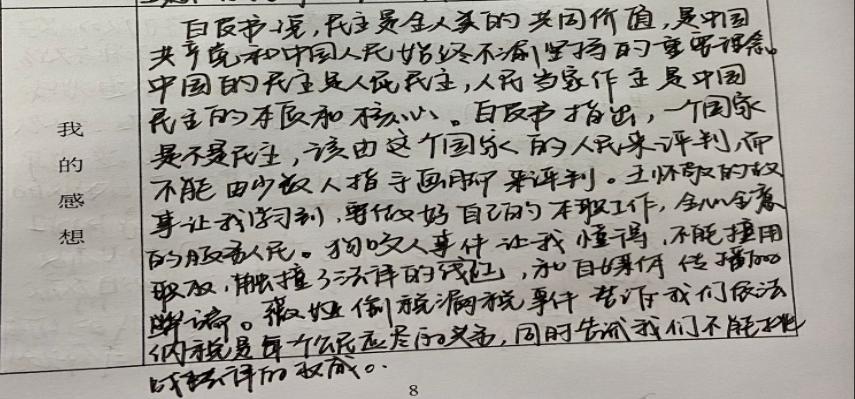 我的感想
白皮书说，民主是全人类的共同价值，是中国
共产党和中国人民始终不渝坚持的重要理念。
中国的民主是人民民主，人民当家作主是中国
民主的本质和核心。白皮书指出，一个国家
是不是民主，该由这个国家的人民来评判，而
不能由少数人指手画脚来评判。王怀敬的故
事让我学习到，要做好自己的本职工作，全心全意
的服务人民。狗咬人事件让我懂得，不能擅用
职权，触撞了法律的线，和自媒体传播
。偷税漏税事件告诉我们依法
纳税是每个公民应尽的义务，同时告诫我们不能挑
战法律的权威。
8